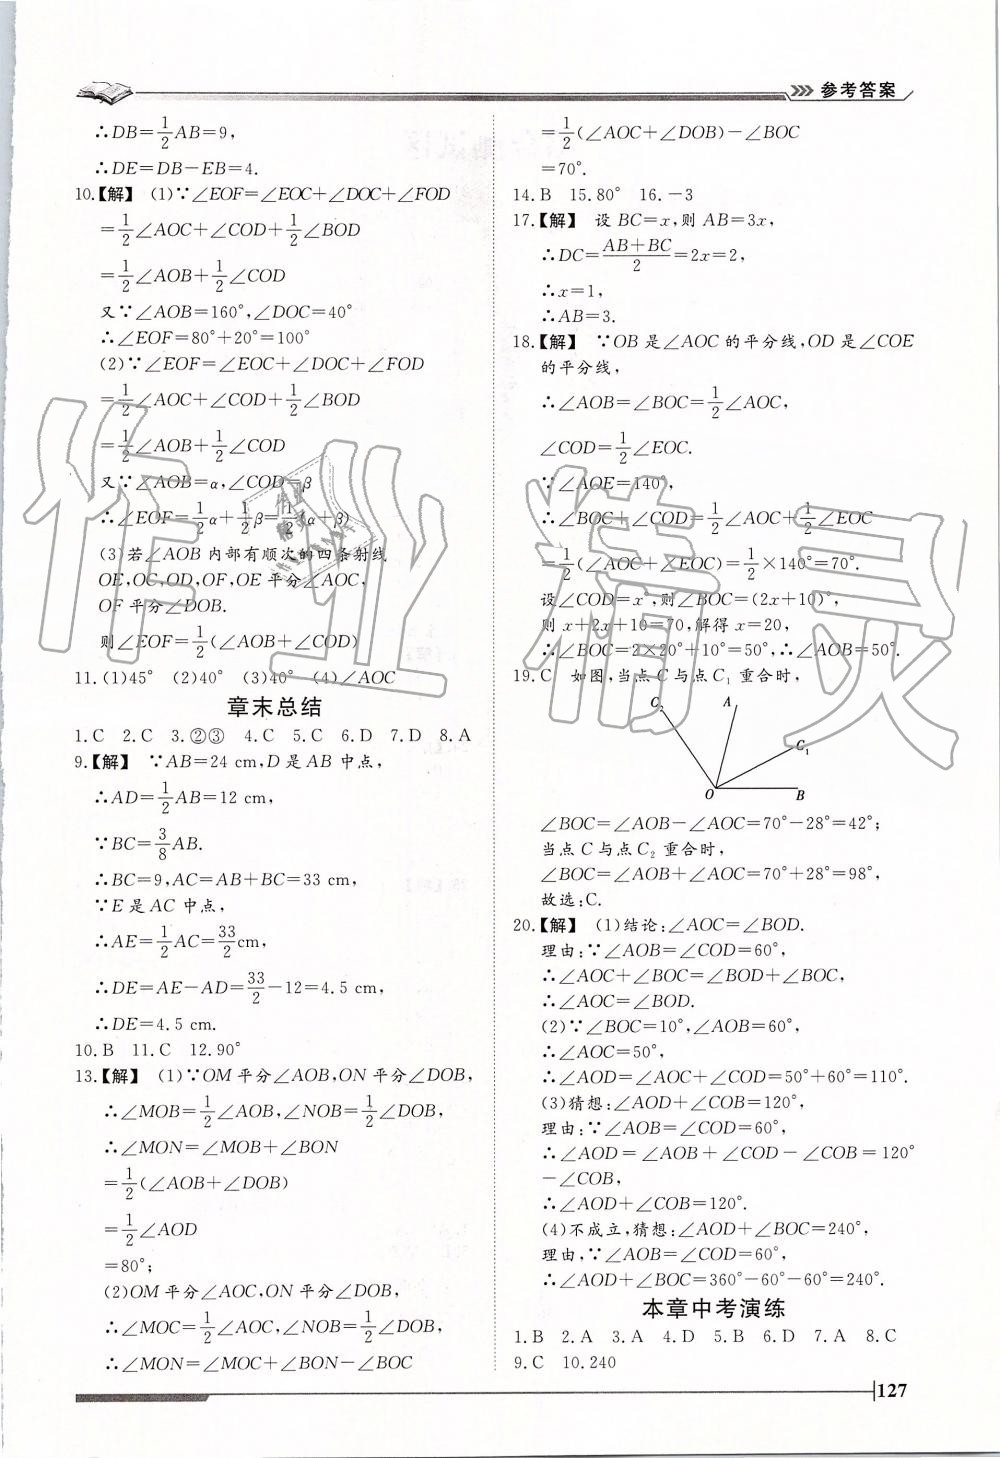 参考答案
∴DB=1/2AB=9,
∴DE=DB-EB=4.
10.【解】 (1)∵∠EOF=∠EOC+∠DOC+∠FOD
=1/2∠AOC+∠COD+1/2∠BOD
=1/2∠AOB+1/2∠COD
又∵∠AOB=160°,∠DOC=40°
∴∠EOF=80°+20°=100°
(2)∵∠EOF=∠EOC+∠DOC+∠FOD
=1/2∠AOC+∠COD+1/2∠BOD
=1/2∠AOB+1/2∠COD
又∵∠AOB=α,∠COD=β
∴∠EOF=1/2α+1/2β=1/2(α+β)
(3)若∠AOB内部有顺次的四条射线
OE,OC,OD,OF,OE平分∠AOC,
OF平分∠DOB.
则∠EOF=1/2(∠AOB+∠COD)
11.(1)45° (2)40° (3)40° (4)∠AOC
章末总结
1.C 2.C 3.②③ 4.C 5.C 6.D 7.D 8.A
9.【解】 ∵AB=24 cm,D是AB中点,
∴AD=1/2AB=12 cm,
∵BC=3/8AB.
∴BC=9,AC=AB+BC=33 cm,
∵E是AC中点,
∴AE=1/2AC=33/2cm,
∴DE=AE-AD=33/2-12=4.5 cm,
∴DE=4.5 cm.
10.B 11.C 12.90°
13.【解】 (1)∵OM平分∠AOB,ON平分∠DOB,
∴∠MOB=1/2∠AOB,∠NOB=1/2∠DOB,
∴∠MON=∠MOB+∠BON
=1/2(∠AOB+∠DOB)
=1/2∠AOD
=80°;
(2)OM平分∠AOC,ON平分∠DOB,
∴∠MOC=1/2∠AOC,∠NOB=1/2∠DOB,
∴∠MON=∠MOC+∠BON-∠BOC
=1/2(∠AOC+∠DOB)-∠BOC
=70°.
14.B 15.80° 16.-3
17.【解】 设BC=x,则AB=3x,
∴DC=(AB+BC)/2=2x=2,
∴x=1,
∴AB=3.
18.【解】 ∵OB是∠AOC的平分线,OD是∠COE
的平分线,
∴∠AOB=∠BOC=1/2∠AOC,
∠COD=1/2∠EOC.
∵∠AOE=140°,
∴∠BOC+∠COD=1/2∠AOC+1/2∠EOC
=1/2(∠AOC+∠EOC)=1/2×140°=70°.
设∠COD=x°,则∠BOC=(2x+10)°,
则x+2x+10=70,解得x=20,
∴∠BOC=2×20°+10°=50°,∴∠AOB=50°.
19.C 如图,当点C与点C₁重合时,
C₂ A
C₁
O B
∠BOC=∠AOB-∠AOC=70°-28°=42°;
当点C与点C₂重合时,
∠BOC=∠AOB+∠AOC=70°+28°=98°,
故选:C.
20.【解】 (1)结论:∠AOC=∠BOD.
理由:∵∠AOB=∠COD=60°,
∴∠AOC+∠BOC=∠BOD+∠BOC,
∴∠AOC=∠BOD.
(2)∵∠BOC=10°,∠AOB=60°,
∴∠AOC=50°,
∴∠AOD=∠AOC+∠COD=50°+60°=110°.
(3)猜想:∠AOD+∠COB=120°,
理由:∵∠AOB=∠COD=60°,
∴∠AOD=∠AOB+∠COD-∠COB=120°
-∠COB,
∴∠AOD+∠COB=120°.
(4)不成立,猜想:∠AOD+∠BOC=240°,
理由,∵∠AOB=∠COD=60°,
∴∠AOD+∠BOC=360°-60°-60°=240°.
本章中考演练
1.B 2.A 3.A 4.D 5.B 6.D 7.A 8.C
9.C 10.240
127
作业精灵